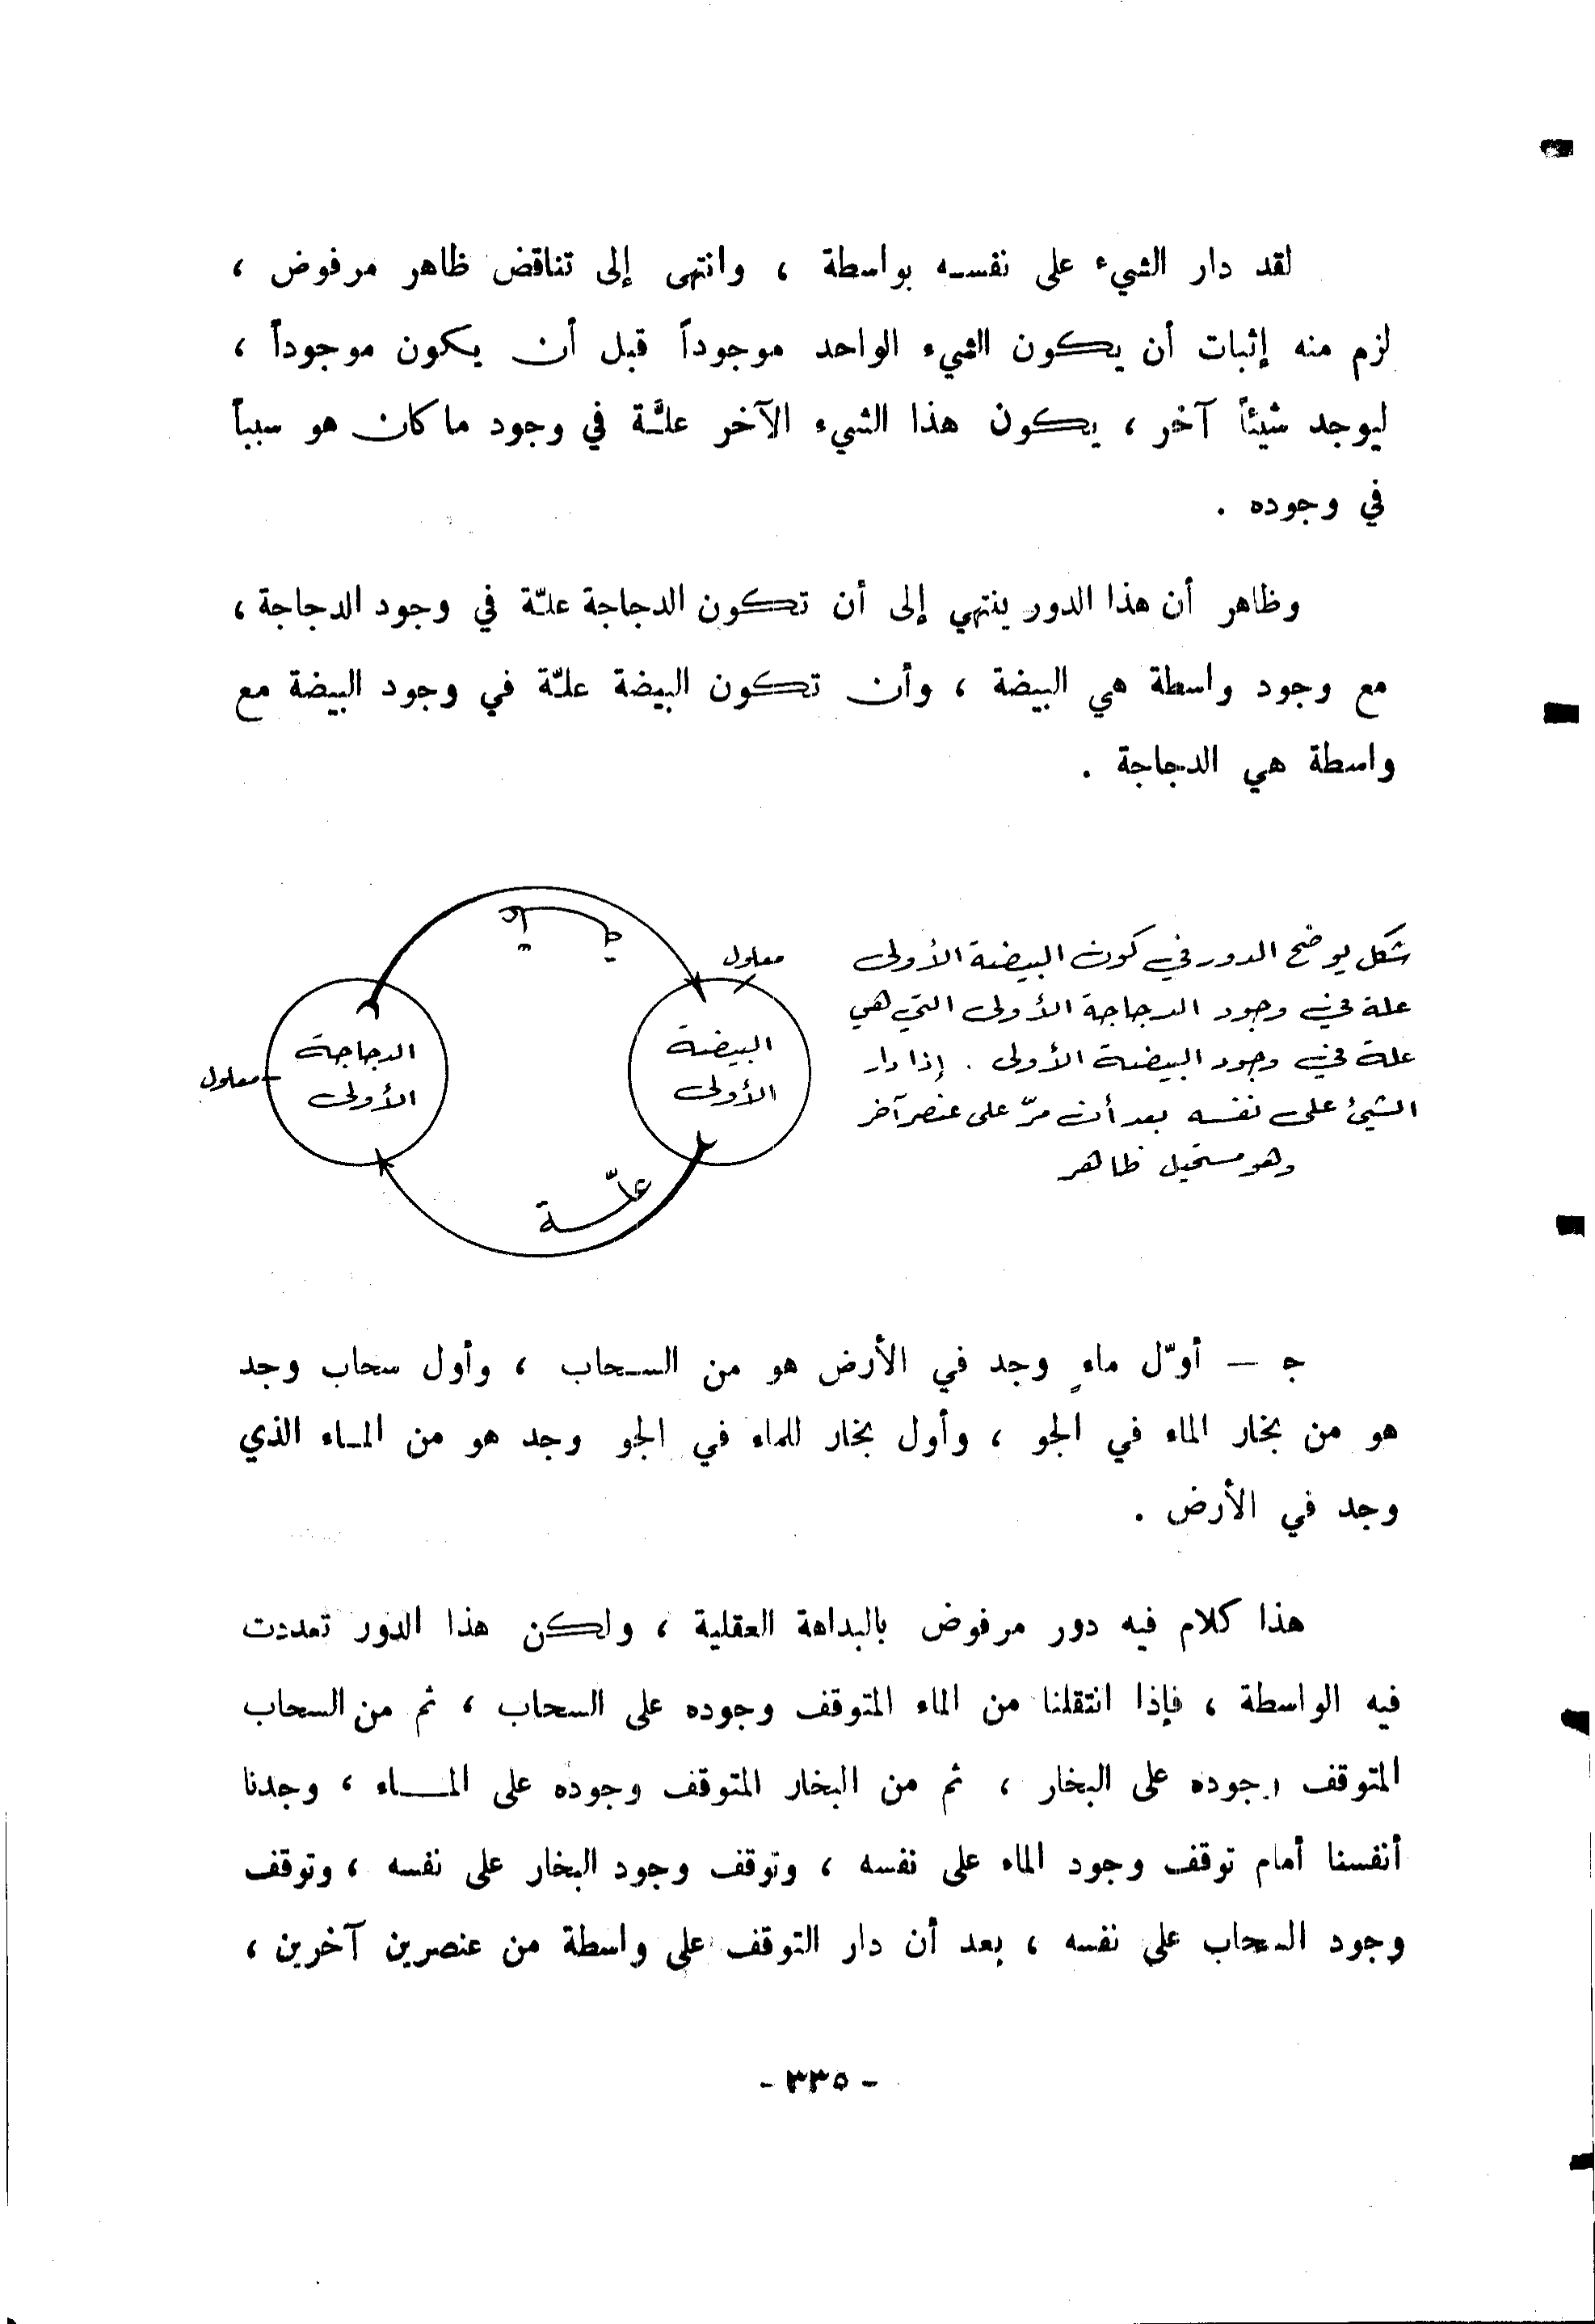 لقد دار الشيء على نفسه بواسطة ، وانتهى إلى تناقض ظاهر مرفوض ،
لزم منه إثبات أن يكون الشيء الواحد موجوداً قبل أن يكون موجوداً ،
ليوجد شيئاً آخر ، يكون هذا الشيء الآخر علَّة في وجود ما كان هو سبباً
في وجوده .
وظاهر أن هذا الدور ينتهي إلى أن تكون الدجاجة علّة في وجود الدجاجة ،
مع وجود واسطة هي البيضة ، وأن تكون البيضة علّة في وجود البيضة مع
واسطة هي الدجاجة .
شكل يوضح الدور في كون البيضة الأولى
علة في وجود الدجاجة الأولى التي هي
علة في وجود البيضة الأولى . إذا دار
الشيئ على نفسه بعد أن مرّ على عنصر آخر
وهو مستحيل ظاهر
معلول
البيضة
الأولى
الدجاجة
الأولى
معلول
علّة
ج — أوّل ماءٍ وجد في الأرض هو من السحاب ، وأول سحاب وجد
هو من بخار الماء في الجو ، وأول بخار للماء في الجو وجد هو من الماء الذي
وجد في الأرض .
هذا كلام فيه دور مرفوض بالبداهة العقلية ، ولكن هذا الدور تعددت
فيه الواسطة ، فإذا انتقلنا من الماء المتوقف وجوده على السحاب ، ثم من السحاب
المتوقف وجوده على البخار ، ثم من البخار المتوقف وجوده على الماء ، وجدنا
أنفسنا أمام توقف وجود الماء على نفسه ، وتوقف وجود البخار على نفسه ، وتوقف
وجود السحاب على نفسه ، بعد أن دار التوقف على واسطة من عنصرين آخرين ،
- ٣٣٥ -